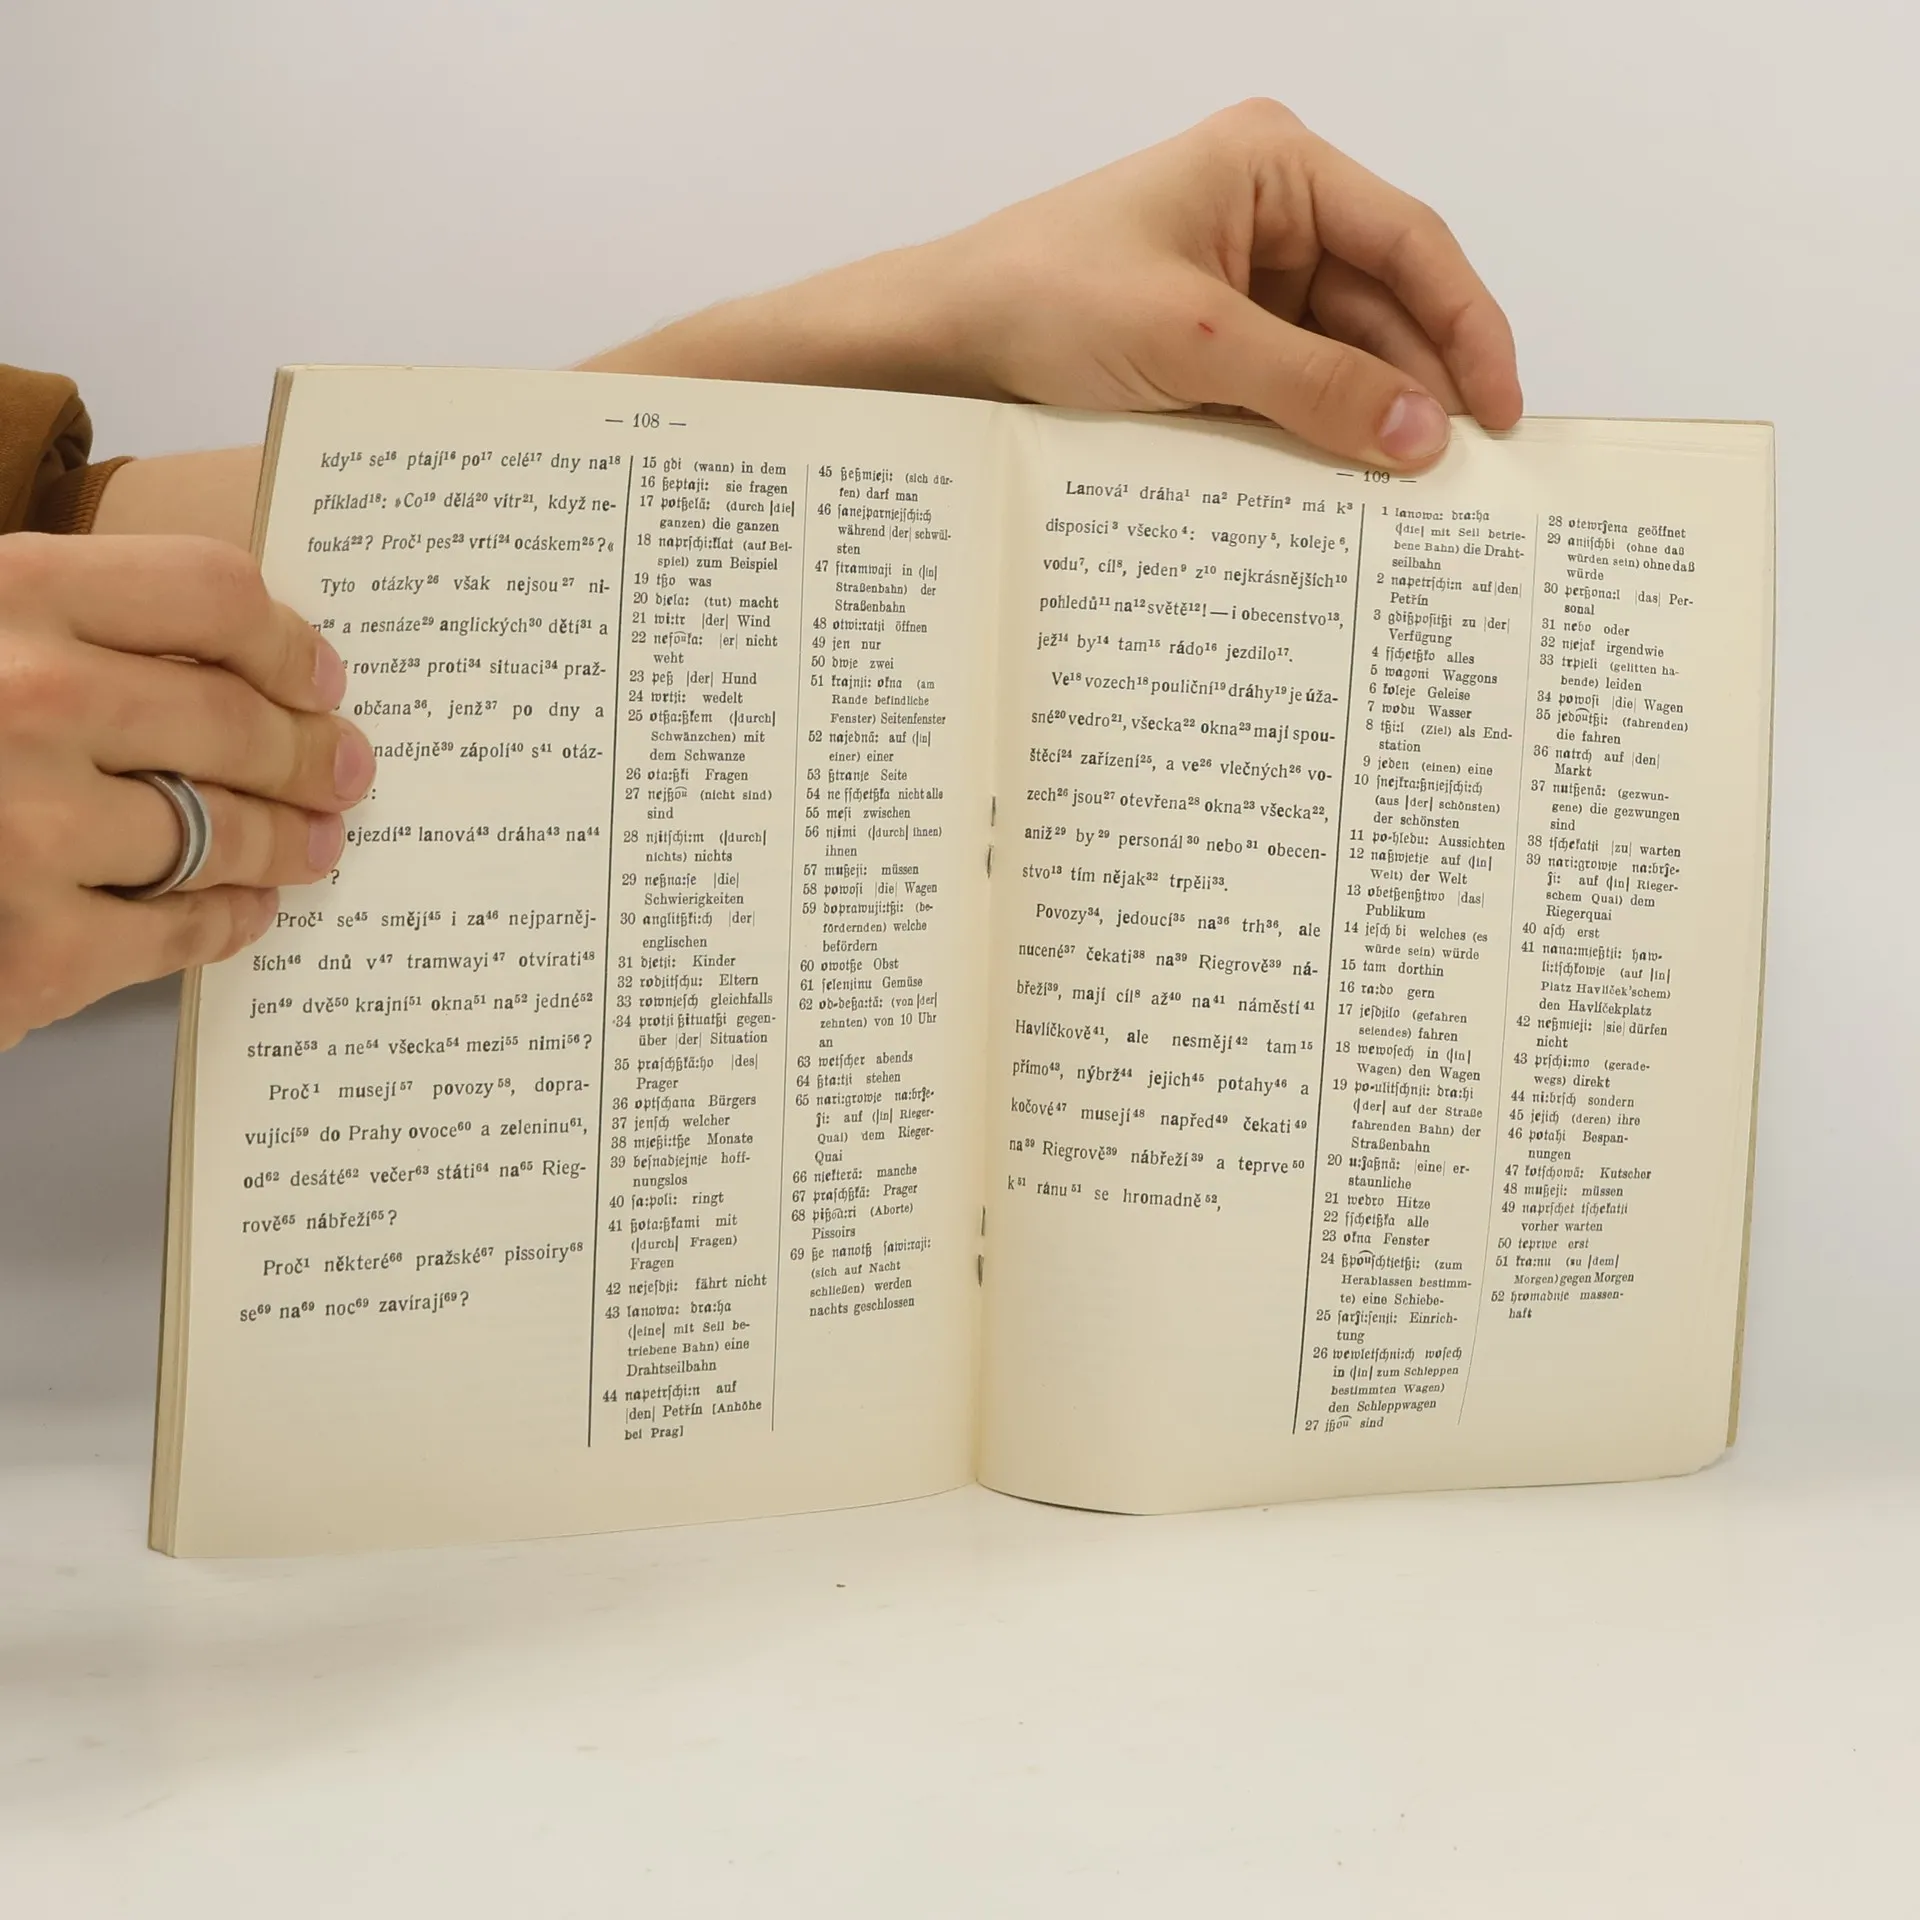 — 108 —
kdy¹⁵ se¹⁶ ptají¹⁶ po¹⁷ celé¹⁷ dny na¹⁸
příklad¹⁸: »Co¹⁹ dělá²⁰ vítr²¹, když ne-
fouká²²? Proč¹ pes²³ vrtí²⁴ ocáskem²⁵?«
Tyto otázky²⁶ však nejsou²⁷ ni-
²⁸ a nesnáze²⁹ anglických³⁰ dětí³¹ a
rovněž³³ proti³⁴ situaci³⁴ praž-
občana³⁶, jenž³⁷ po dny a
nadějně³⁹ zápolí⁴⁰ s⁴¹ otáz-
:
ejezdí⁴² lanová⁴³ dráha⁴³ na⁴⁴
?
Proč¹ se⁴⁵ smějí⁴⁵ i za⁴⁶ nejparněj-
ších⁴⁶ dnů v⁴⁷ tramwayi⁴⁷ otvírati⁴⁸
jen⁴⁹ dvě⁵⁰ krajní⁵¹ okna⁵¹ na⁵² jedné⁵²
straně⁵³ a ne⁵⁴ všecka⁵⁴ mezi⁵⁵ nimi⁵⁶?
Proč¹ musejí⁵⁷ povozy⁵⁸, dopra-
vující⁵⁹ do Prahy ovoce⁶⁰ a zeleninu⁶¹,
od⁶² desáté⁶² večer⁶³ státi⁶⁴ na⁶⁵ Rieg-
rově⁶⁵ nábřeží⁶⁵?
Proč¹ některé⁶⁶ pražské⁶⁷ pissoiry⁶⁸
se⁶⁹ na⁶⁹ noc⁶⁹ zavírají⁶⁹?
15 gdi (wann) in dem
16 ßeptaji: sie fragen
17 potßelä: (durch |die|
ganzen) die ganzen
18 naprſchi:klat (auf Bei-
spiel) zum Beispiel
19 tßo was
20 djela: (tut) macht
21 wi:tr |der| Wind
22 nefouka: |er| nicht
weht
23 peß |der| Hund
24 wrtji: wedelt
25 otßa:ßkem (|durch|
Schwänzchen) mit
dem Schwanze
26 ota:ßki Fragen
27 nejßou (nicht sind)
sind
28 njitſchi:m (|durch|
nichts) nichts
29 neßna:ſe |die|
Schwierigkeiten
30 anglitßki:ch |der|
englischen
31 djetji: Kinder
32 roditſchu: Eltern
33 rownjeſch gleichfalls
34 protji ßituatßi gegen-
über |der| Situation
35 praſchßkä:ho |des|
Prager
36 optſchana Bürgers
37 jenſch welcher
38 mjeßi:tße Monate
39 beſnadjejnje hoff-
nungslos
40 ſa:poli: ringt
41 ßota:ßkami mit
(|durch| Fragen)
Fragen
42 nejeſdji: fährt nicht
43 lanowa: dra:ha
(|eine| mit Seil be-
triebene Bahn) eine
Drahtseilbahn
44 napetrſchi:n auf
|den| Petřín [Anhöhe
bei Prag]
45 ßeßmjeji: (sich dür-
fen) darf man
46 ſanejparnjejſchi:ch
während |der| schwül-
sten
47 ftramwaji in (|in|
Straßenbahn) der
Straßenbahn
48 otwi:ratji öffnen
49 jen nur
50 dwje zwei
51 krajnji: okna (am
Rande befindliche
Fenster) Seitenfenster
52 najednä: auf (|in|
einer) einer
53 ßtranje Seite
54 ne fſchetßka nicht alle
55 meſi zwischen
56 njimi (|durch| ihnen)
ihnen
57 mußeji: müssen
58 powoſi |die| Wagen
59 doprawuji:tßi: (be-
fördernden) welche
befördern
60 owotße Obst
61 ſeleninu Gemüse
62 od-deßa:tä: (von |der|
zehnten) von 10 Uhr
an
63 wetſcher abends
64 ßta:tji stehen
65 nari:growje na:brſche-
ji: auf (|in| Rieger-
Quai) dem Rieger-
Quai
66 njekterä: manche
67 praſchßkä: Prager
68 pißoa:ri (Aborte)
Pissoirs
69 ße nanotß ſawi:raji:
(sich auf Nacht
schließen) werden
nachts geschlossen
— 109 —
Lanová¹ dráha¹ na² Petřín² má k³
disposici³ všecko⁴: vagony⁵, koleje⁶,
vodu⁷, cíl⁸, jeden⁹ z¹⁰ nejkrásnějších¹⁰
pohledů¹¹ na¹² světě¹²! — i obecenstvo¹³,
jež¹⁴ by¹⁴ tam¹⁵ rádo¹⁶ jezdilo¹⁷.
Ve¹⁸ vozech¹⁸ pouliční¹⁹ dráhy¹⁹ je úža-
sné²⁰ vedro²¹, všecka²² okna²³ mají spou-
štěcí²⁴ zařízení²⁵, a ve²⁶ vlečných²⁶ vo-
zech²⁶ jsou²⁷ otevřena²⁸ okna²³ všecka²²,
aniž²⁹ by²⁹ personál³⁰ nebo³¹ obecen-
stvo¹³ tím nějak³² trpěli³³.
Povozy³⁴, jedoucí³⁵ na³⁶ trh³⁶, ale
nucené³⁷ čekati³⁸ na³⁹ Riegrově³⁹ ná-
břeží³⁹, mají cíl⁸ až⁴⁰ na⁴¹ náměstí⁴¹
Havlíčkově⁴¹, ale nesmějí⁴² tam¹⁵
přímo⁴³, nýbrž⁴⁴ jejich⁴⁵ potahy⁴⁶ a
kočové⁴⁷ musejí⁴⁸ napřed⁴⁹ čekati⁴⁹
na³⁹ Riegrově³⁹ nábřeží³⁹ a teprve⁵⁰
k⁵¹ ránu⁵¹ se hromadně⁵²,
1 lanowa: dra:ha
(|die| mit Seil betrie-
bene Bahn) die Draht-
seilbahn
2 napetrſchi:n auf |den|
Petřín
3 gdißpoſitßi zu |der|
Verfügung
4 fſchetßko alles
5 wagoni Waggons
6 koleje Geleise
7 wodu Wasser
8 tßi:l (Ziel) als End-
station
9 jeden (einen) eine
10 ſnejkra:ßnjejſchi:ch
(aus |der| schönsten)
der schönsten
11 po-hledu: Aussichten
12 naßwjetje auf (|in|
Welt) der Welt
13 obetßenßtwo |das|
Publikum
14 jeſch bi welches (es
würde sein) würde
15 tam dorthin
16 ra:do gern
17 jeſdjilo (gefahren
seiendes) fahren
18 wewoſech in (|in|
Wagen) den Wagen
19 po-ulitſchnji: dra:hi
(|der| auf der Straße
fahrenden Bahn) der
Straßenbahn
20 u:ſchaßnä: |eine| er-
staunliche
21 wedro Hitze
22 fſchetßka alle
23 okna Fenster
24 ßpouſchtjetßi: (zum
Herablassen bestimm-
te) eine Schiebe-
25 ſarſchi:ſenji: Einrich-
tung
26 wewletſchni:ch woſech
in (|in| zum Schleppen
bestimmten Wagen)
den Schleppwagen
27 jßou sind
28 otewrſchena geöffnet
29 anjiſchbi (ohne daß
würden sein) ohne daß
würde
30 perßona:l |das| Per-
sonal
31 nebo oder
32 njejak irgendwie
33 trpjeli (gelitten ha-
bende) leiden
34 powoſi |die| Wagen
35 jedoutßi: (fahrenden)
die fahren
36 natrch auf |den|
Markt
37 nutßenä: (gezwun-
gene) die gezwungen
sind
38 tſchekatji |zu| warten
39 nari:growje na:brſche-
ji: auf (|in| Rieger-
schem Quai) dem
Riegerquai
40 aſch erst
41 nana:mjeßtji: haw-
li:tſchkowje (auf |in|
Platz Havlíček'schem)
den Havlíčekplatz
42 neßmjeji: |sie| dürfen
nicht
43 prſchi:mo (gerade-
wegs) direkt
44 ni:brſch sondern
45 jejich (deren) ihre
46 potahi Bespan-
nungen
47 kotſchowä: Kutscher
48 mußeji: müssen
49 naprſchet tſchekatji
vorher warten
50 teprwe erst
51 kra:nu (zu |dem|
Morgen) gegen Morgen
52 hromadnje massen-
haft